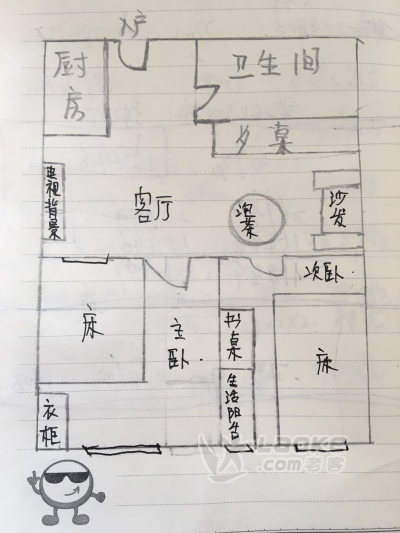 入户
厨房
卫生间
夕桌
电视背景
客厅
沙发
次卧
床
主卧
书桌
床
生活阳台
衣柜
LOOKE
.com老客